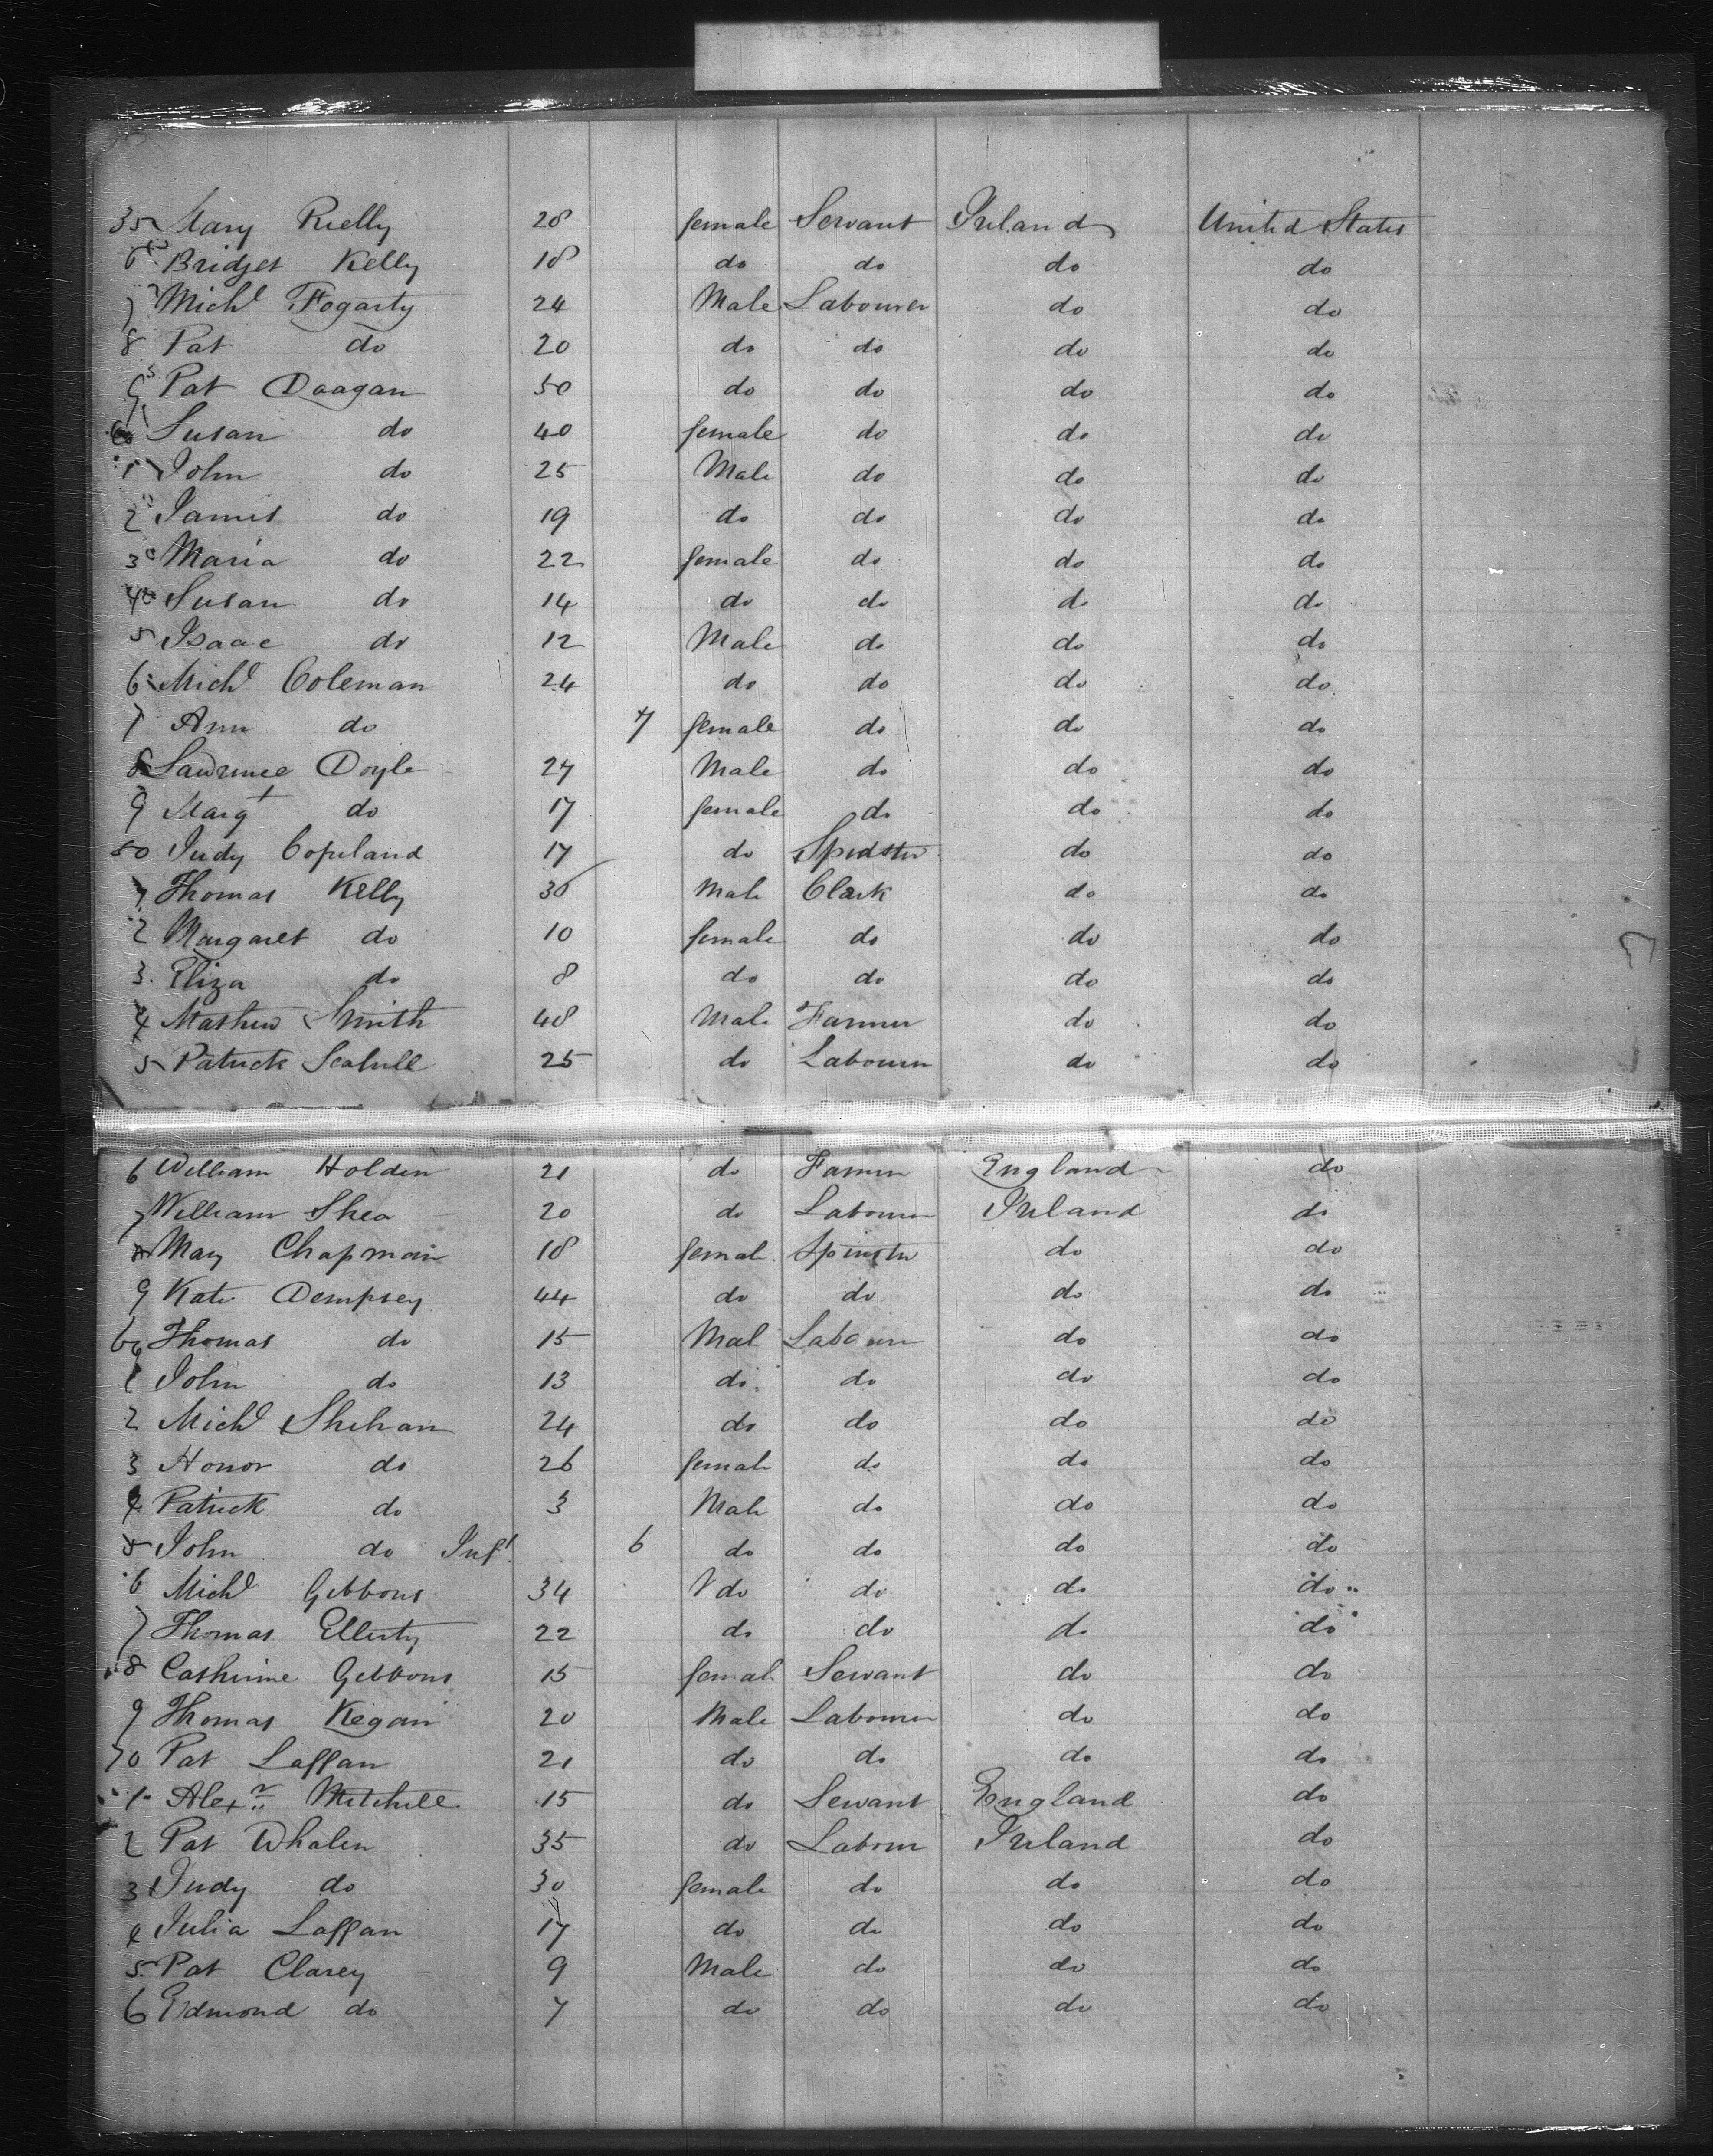 35 Mary Rielly 28 female Servant Ireland United States
6 Bridget Kelly 18 do do do do
7 Michl Fogarty 24 Male Labourer do do
8 Pat do 20 do do do do
9 Pat Daagan 50 do do do do
Susan do 40 female do do do
1 John do 25 Male do do do
2 James do 19 do do do do
3 Maria do 22 female do do do
4 Susan do 14 do do do do
5 Isaac do 12 Male do do do
6 Michl Coleman 24 do do do do
7 Ann do 7 female do do do
8 Lawrence Doyle 27 Male do do do
9 Margt do 17 female do do do
50 Judy Copeland 17 do Spidster do do
Thomas Kelly 30 Male Clark do do
2 Margaret do 10 female do do do
3. Eliza do 8 do do do do
4 Mathew Smith 48 Male Farmer do do
5 Patrick Scahill 25 do Labourer do do
6 William Holden 21 do Farmer England do
7 William Shea 20 do Labourer Ireland do
8 Mary Chapman 18 female Spinster do do
9 Kate Dempsey 44 do do do do
60 Thomas do 15 Male Labourer do do
1 John do 13 do do do do
2 Michl Shehan 24 do do do do
3 Honor do 26 female do do do
4 Patrick do 3 Male do do do
5 John do Inft 6 do do do do
6 Michl Gibbons 34 do do do do
7 Thomas Ellerty 22 do do do do
8 Catherine Gibbons 15 female Servant do do
9 Thomas Kegan 20 Male Labourer do do
70 Pat Laffan 21 do do do do
1 Alexr Mitchell 15 do Servant England do
2 Pat Whalen 35 do Labourer Ireland do
3 Judy do 30 female do do do
4 Julia Laffan 17 do do do do
5 Pat Clarey 9 Male do do do
6 Edmond do 7 do do do do